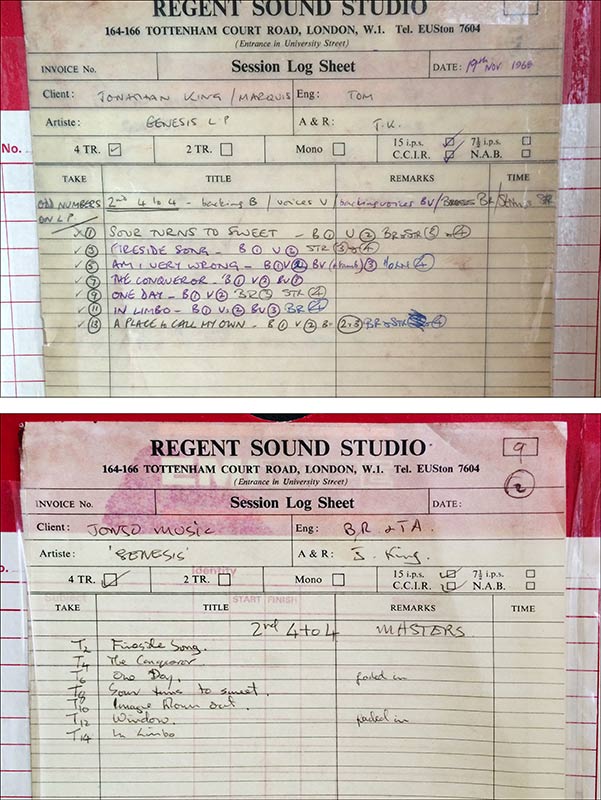 REGENT SOUND STUDIO
164-166 TOTTENHAM COURT ROAD, LONDON, W.1. Tel. EUSton 7604
(Entrance in University Street)
INVOICE No. Session Log Sheet DATE: 19th NOV 1968
Client: JONATHAN KING / MARQUIS Eng: TOM
Artiste: GENESIS L.P A & R: J.K.
No. 4 TR. ✓ 2 TR. Mono 15 i.p.s. ✓ 7½ i.p.s.
C.C.I.R. ✓ N.A.B.
TAKE TITLE REMARKS TIME
ODD NUMBERS ON L.P. 2nd 4 to 4 - backing B / voices V / backing voices BV / BR / STR
① SOUR TURNS TO SWEET - B ① V ② BR & STR ③ & ④
✓ ③ FIRESIDE SONG - B ① V ② STR ③ & ④
✓ ⑤ AM I VERY WRONG - B ① V ② BV ③ HORN ④
✓ ⑦ THE CONQUEROR - B ① V ② BV
✓ ⑨ ONE DAY - B ① V ② BR ③ STR ④
✓ ⑪ IN LIMBO - B ① V ② BV ③ BR ④
✓ ⑬ A PLACE TO CALL MY OWN - B ① V ② BR & STR
REGENT SOUND STUDIO 9
164-166 TOTTENHAM COURT ROAD, LONDON, W.1. Tel. EUSton 7604
(Entrance in University Street) 2
INVOICE No. Session Log Sheet DATE:
Client: JONJO MUSIC Eng: B.R. & T.A.
Artiste: 'GENESIS' A & R: J. King.
Identity
4 TR. ✓ 2 TR. Mono 15 i.p.s. ✓ 7½ i.p.s.
C.C.I.R. ✓ N.A.B.
Subject START FINISH
TAKE TITLE REMARKS TIME
2nd 4 to 4 MASTERS
T2 Fireside Song.
T4 The Conqueror.
T6 One Day. faded in
T8 Sour turns to sweet.
T10 Image Blown out.
T12 Window. faded in
T14 In Limbo